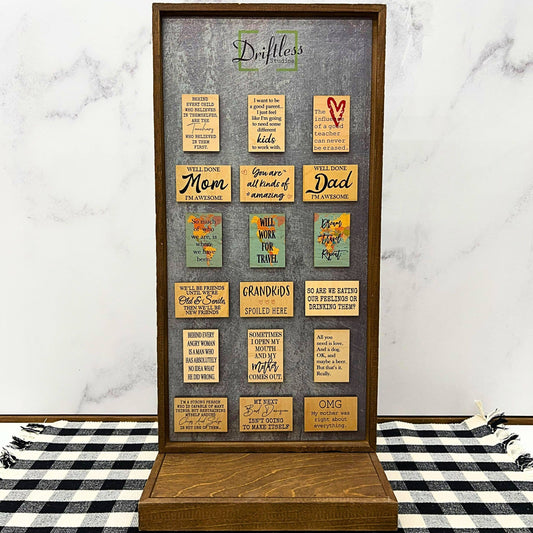 Driftless
Studios
BEHIND
EVERY CHILD
WHO BELIEVES
IN THEMSELVES,
ARE THE
Teachers
WHO BELIEVED
IN THEM
FIRST.
I want to be
a good parent...
I just feel
like I'm going
to need some
different
kids
to work with.
The
influence
of a good
teacher
can never
be erased.
WELL DONE
Mom
I'M AWESOME
You are
all kinds of
amazing
WELL DONE
Dad
I'M AWESOME
So much
of who
we are, is
where
we have
been.
WILL
WORK
FOR
TRAVEL
Dream
Travel
Repeat
WE'LL BE FRIENDS
UNTIL WE'RE
Old & Senile,
THEN WE'LL BE
NEW FRIENDS
GRANDKIDS
SPOILED HERE
SO ARE WE EATING
OUR FEELINGS OR
DRINKING THEM?
BEHIND EVERY
ANGRY WOMAN
IS A MAN WHO
HAS ABSOLUTELY
NO IDEA WHAT
HE DID WRONG.
SOMETIMES
I OPEN MY
MOUTH
AND MY
mother
COMES OUT.
All you
need is love.
And a dog.
OK, and
maybe a beer.
But that's it.
Really.
I'M A STRONG PERSON
WHO IS CAPABLE OF MAKING
THINGS, BUT RESTRAINING
MYSELF AROUND
Chips And Salsa
IS NOT ONE OF THEM.
MY NEXT
Bad Decision
ISN'T GOING
TO MAKE ITSELF
OMG
My mother was
right about
everything.